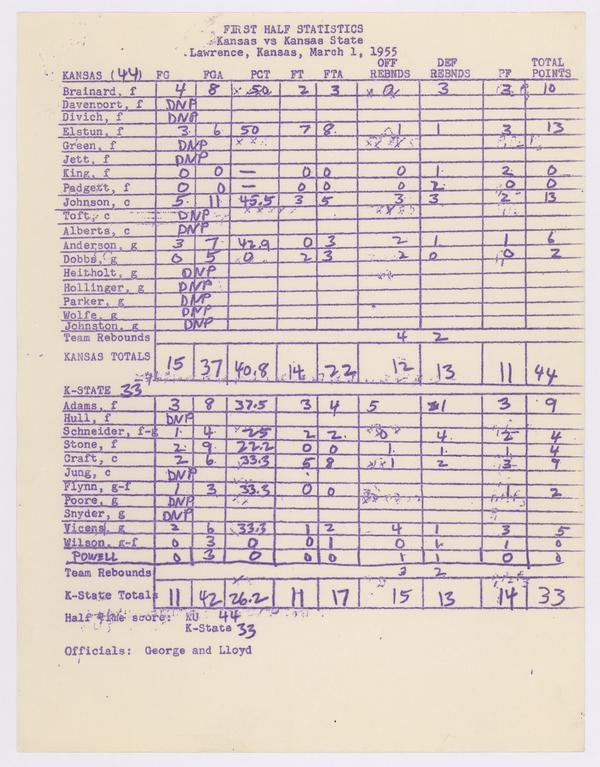 FIRST HALF STATISTICS
Kansas vs Kansas State
Lawrence, Kansas, March 1, 1955
KANSAS (44) FG FGA PCT FT FTA OFF REBNDS DEF REBNDS PF TOTAL POINTS
Brainard, f 4 8 50 2 3 0 3 3 10
Davenport, f DNP
Divich, f DNP
Elstun, f 3 6 50 7 8 1 1 3 13
Green, f DNP
Jett, f DNP
King, f 0 0 — 0 0 0 1 2 0
Padgett, f 0 0 — 0 0 0 2 0 0
Johnson, c 5 11 45.5 3 5 3 3 2 13
Toft, c DNP
Alberts, c DNP
Anderson, g 3 7 42.9 0 3 2 1 1 6
Dobbs, g 0 5 0 2 3 2 0 0 2
Heitholt, g DNP
Hollinger, g DNP
Parker, g DNP
Wolfe, g DNP
Johnston, g DNP
Team Rebounds 4 2
KANSAS TOTALS 15 37 40.8 14 22 12 13 11 44
K-STATE 33
Adams, f 3 8 37.5 3 4 5 1 3 9
Hull, f DNP
Schneider, f-g 1 4 25 2 2 0 4 2 4
Stone, f 2 9 22.2 0 0 1 1 1 4
Craft, c 2 6 33.3 5 8 1 2 3 9
Jung, c DNP
Flynn, g-f 1 3 33.3 0 0 1 2
Poore, g DNP
Snyder, g DNP
Vicens, g 2 6 33.3 1 2 4 1 3 5
Wilson, g-f 0 3 0 0 1 0 1 1 0
POWELL 0 3 0 0 0 1 1 0 0
Team Rebounds 3 2
K-State Totals 11 42 26.2 11 17 15 13 14 33
Half time score: KU 44
K-State 33
Officials: George and Lloyd